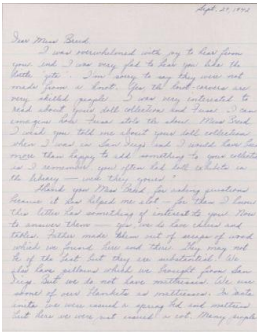 Sept. 27, 1942
Dear Miss Breed
I was overwhelmed with joy to hear from
you and I was very glad to hear you like the
little "gita". I'm sorry to say they were not
made from a knot. Yes the wood-carvers are
very skilled people. I was very interested to
read about your doll collection and Fusa. I can
imagine how Fusa stole the show. Miss Breed
I wish you told me about your doll collection
when I was in San Diego and I would have been
more than happy to add something to your collection
As I remember you often had doll exhibits in
the library - were they yours?
Thank you Miss Breed for asking questions
because it sure helped me alot - for then I know
this letter has something of interest to you. Now
to answer them - yes, we do have chairs and
tables. Father made them out of scraps of wood
which we found here and there. They may not
be of the best but they are substantial. We
also have pillows which we brought from San
Diego. But we do not have mattresses. We use
some of our blankets as mattresses. In Santa
Anita we were issued a spring bed and mattress
but here we were not issued a cot. Many people